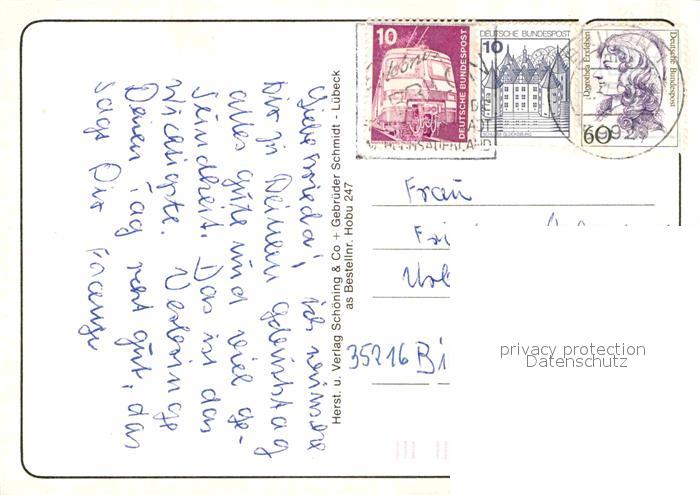 Liebe Frieda! Ich wünsche
Dir zu Deinem Geburtstag
alles gute und viel ge-
sundheit. Das ist das
wichtigste. Verbringe
Deinen Tag recht gut, das
sagt Dir
Herst. u. Verlag Schöning & Co + Gebrüder Schmidt - Lübeck
as Bestellnr. Hobu 247
10
DEUTSCHE BUNDESPOST
DEUTSCHE BUNDESPOST
10
SCHLOSS GLÜCKSBURG
Dorothea Erxleben
Deutsche Bundespost
60
Frau
35216 Bi
privacy protection
Datenschutz